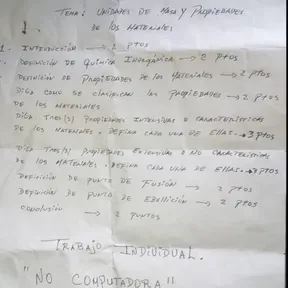 TEMA: UNIDADES DE MASA Y PROPIEDADES
DE LOS MATERIALES
1.- INTRODUCCIÓN → 2 PTOS
DEFINICIÓN DE QUÍMICA INORGÁNICA → 2 PTOS
DEFINICIÓN DE PROPIEDADES DE LOS MATERIALES → 2 PTOS
DIGA COMO SE CLASIFICAN LAS PROPIEDADES → 2 PTOS
DE LOS MATERIALES
DIGA TRES (3) PROPIEDADES INTENSIVAS O CARACTERÍSTICAS
DE LOS MATERIALES. DEFINA CADA UNA DE ELLAS. → 3 PTOS
DIGA TRES (3) PROPIEDADES EXTENSIVAS O NO CARACTERÍSTICAS
DE LOS MATERIALES. DEFINA CADA UNA DE ELLAS → 3 PTOS
DEFINICIÓN DE PUNTO DE FUSIÓN → 2 PTOS
DEFINICIÓN DE PUNTO DE EBULLICIÓN → 2 PTOS
CONCLUSIÓN → 2 PUNTOS
TRABAJO INDIVIDUAL.
"NO COMPUTADORA"